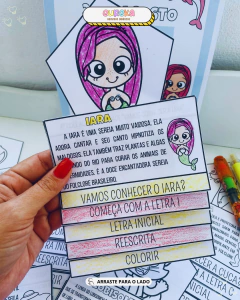 EUREKA
STO
IARA
A IARA É UMA SEREIA MUITO VAIDOSA, ELA
ADORA CANTAR E SEU CANTO HIPNOTIZA OS
MALDOSOS. ELA TAMBÉM TRAZ PLANTAS E ALGAS
DO RIO PARA CURAR OS ANIMAIS DE
É A DOCE ENCANTADORA SEREIA
DO FOLCLORE BRASILEIRO
VAMOS CONHECER O IARA?
COMEÇA COM A LETRA I
LETRA INICIAL
REESCRITA
COLORIR
ARRASTE PARA O LADO